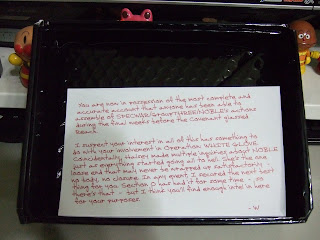 You are now in possession of the most complete and
accurate account that anyone has been able to
assemble of SPECWAR/Group THREE/NOBLE's actions
during the final weeks before the Covenant glassed
Reach.
I suspect your interest in all of this has something to
do with your involvement in Operation: WHITE GLOVE.
Coincidentally, Halsey made multiple inquiries about NOBLE
just as everything started going all to hell. She's the one
loose end that may never be squared up satisfactorily --
no body, no closure. In any event, I secured the next best
thing for you. Section 0 has had it for some time -- so
there's that -- but I think you'll find enough intel in here
for your purposes.
-W